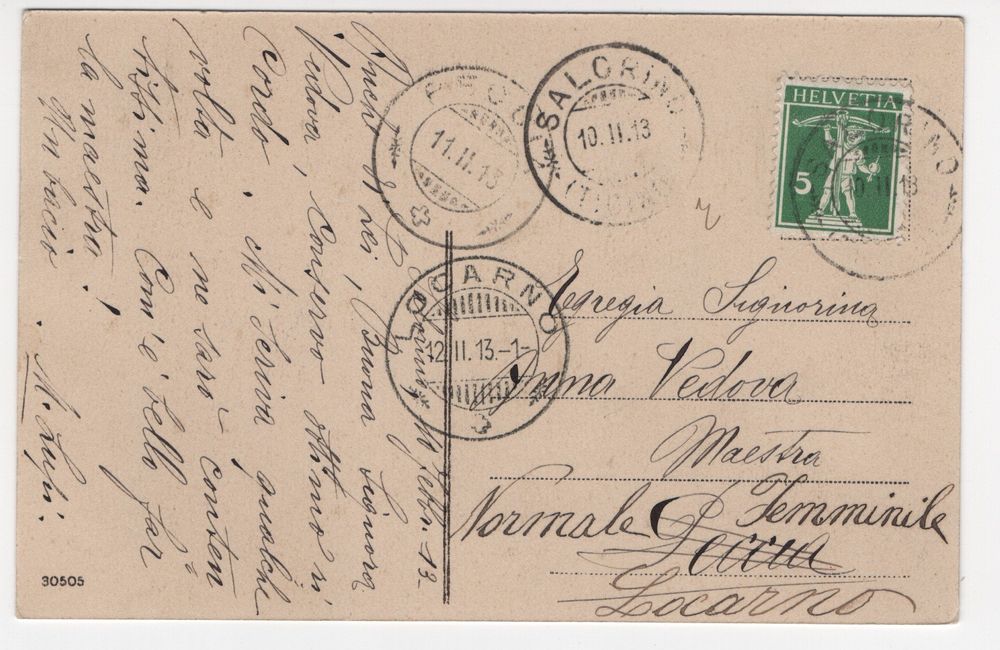 HELVETIA
5
SALORINO
10.II.13
(TICINO)
11.II.13
LOCARNO
12.II.13.-1-
Egregia Signorina
Emma Vedova
Maestra
Normale Femminile
Locarno
Febbr. 13
Anche di Lei, Buona Signora
Vedova, conservo ottimo ri
cordo. Mi scriva qualche
volta e ne sarò conten
tissima. Com'è bello far
la maestra!
Un bacio.
30505